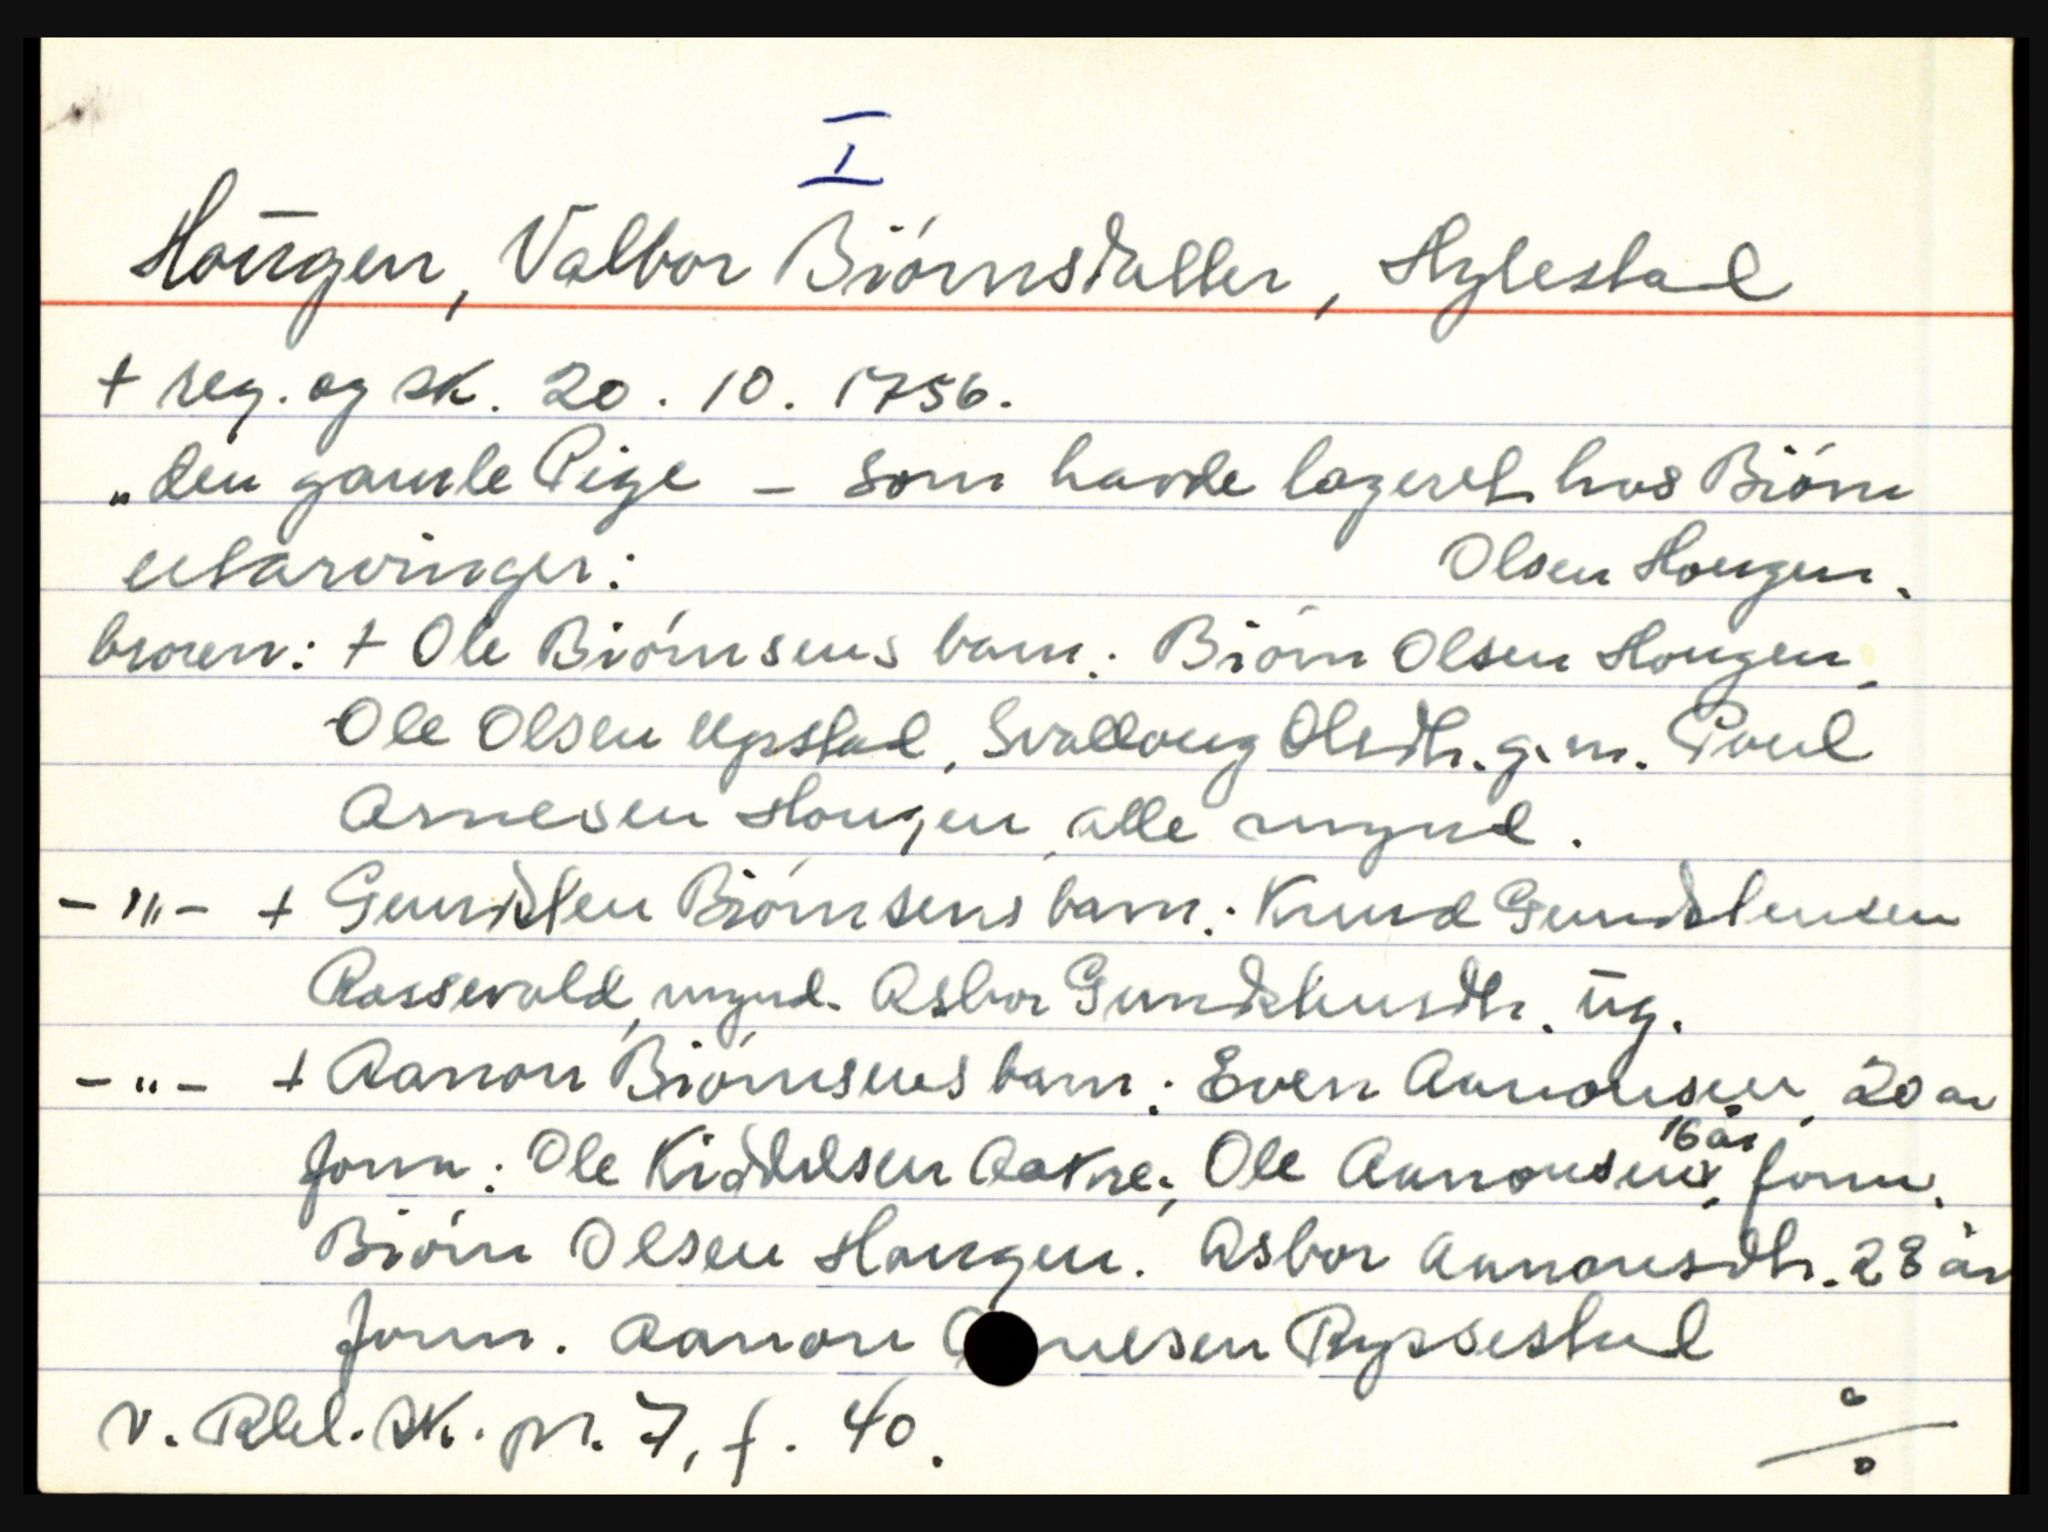 I
Hougen, Valbor Biørnsdatter, Hylestad
+ reg. og sk. 20. 10. 1756.
"den gamle Pige - som havde lageret hos Biørn
utarvinger: Olsen Hougen.
broren: + Ole Biørnsens barn: Biørn Olsen Hougen,
Ole Olsen Upstad, Svalloug Olsdtr. g.m. Poul
Arnesen Hougen, alle mynd.
-"- + Gunsten Biørnsens barn: Knud Gunstensen
Rassevold, mynd. Asbor Gunstensdtr. ug.
-"- + Aanon Biørnsens barn: Even Aanonsen, 20 år
form: Ole Kiddelsen Aakre; Ole Aanonsen, 16 år form.
Biørn Olsen Hougen. Asbor Aanonsdtr. 28 år
form. Aanon Rysstad
v. Rbl. sk. pr. 7, f. 40.
%